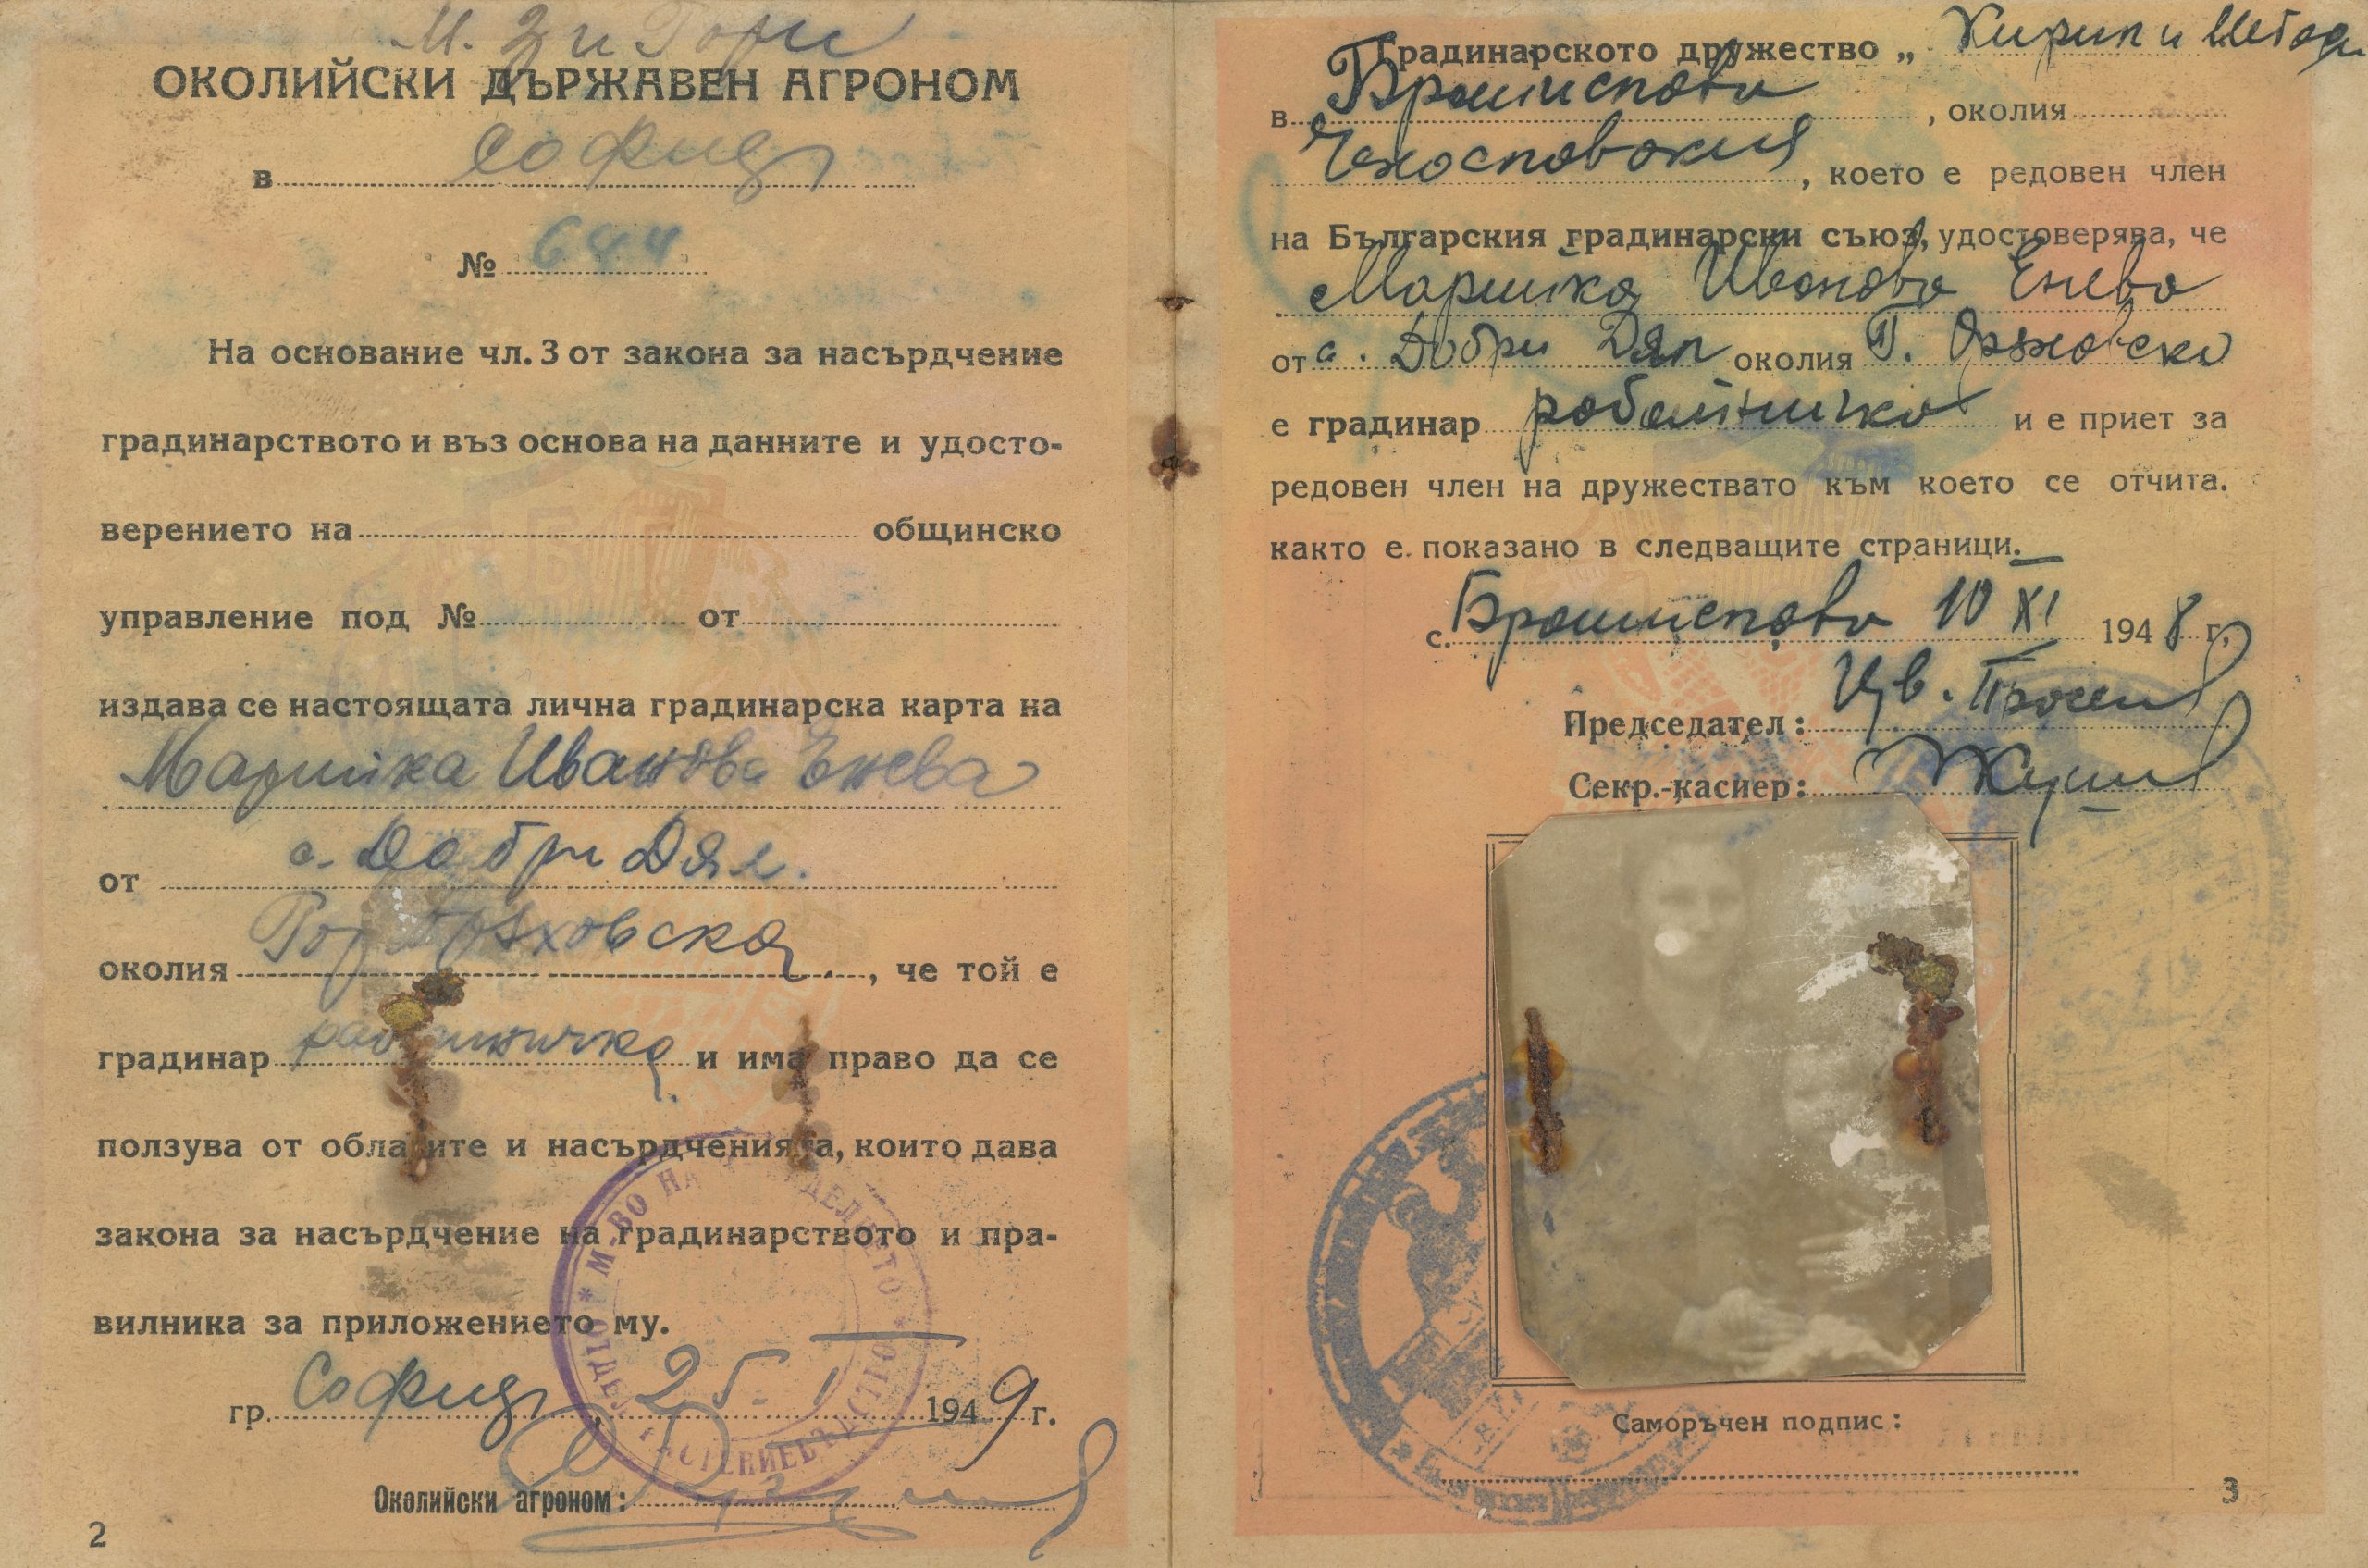 М. З и Гори
ОКОЛИЙСКИ ДЪРЖАВЕН АГРОНОМ
в София
№ 644
На основание чл. 3 от закона за насърдчение
градинарството и въз основа на данните и удосто-
верението на общинско
управление под № от
издава се настоящата лична градинарска карта на
Марийка Иванова Енева
от с. Добри Дял.
околия Гор. Оряховска, че той е
градинар работничка и има право да се
ползува от облагите и насърдченията, които дава
закона за насърдчение на градинарството и пра-
вилника за приложението му.
гр. София, 25. I 1949 г.
Околийски агроном:
М-ВО НА ЗЕМЕДЕЛИЕТО
2
Градинарското дружество „ Кирил и Методи
в Братислава, околия
Чехословакия, което е редовен член
на Българския градинарски съюз, удостоверява, че
Марийка Иванова Енева
от с. Добри Дял околия Г. Оряховска
е градинар работничка и е приет за
редовен член на дружествато към което се отчита.
както е показано в следващите страници.
с. Братислава 10 XI 1948 г.
Председател: Цв.
Секр.-касиер:
Саморъчен подпис:
3